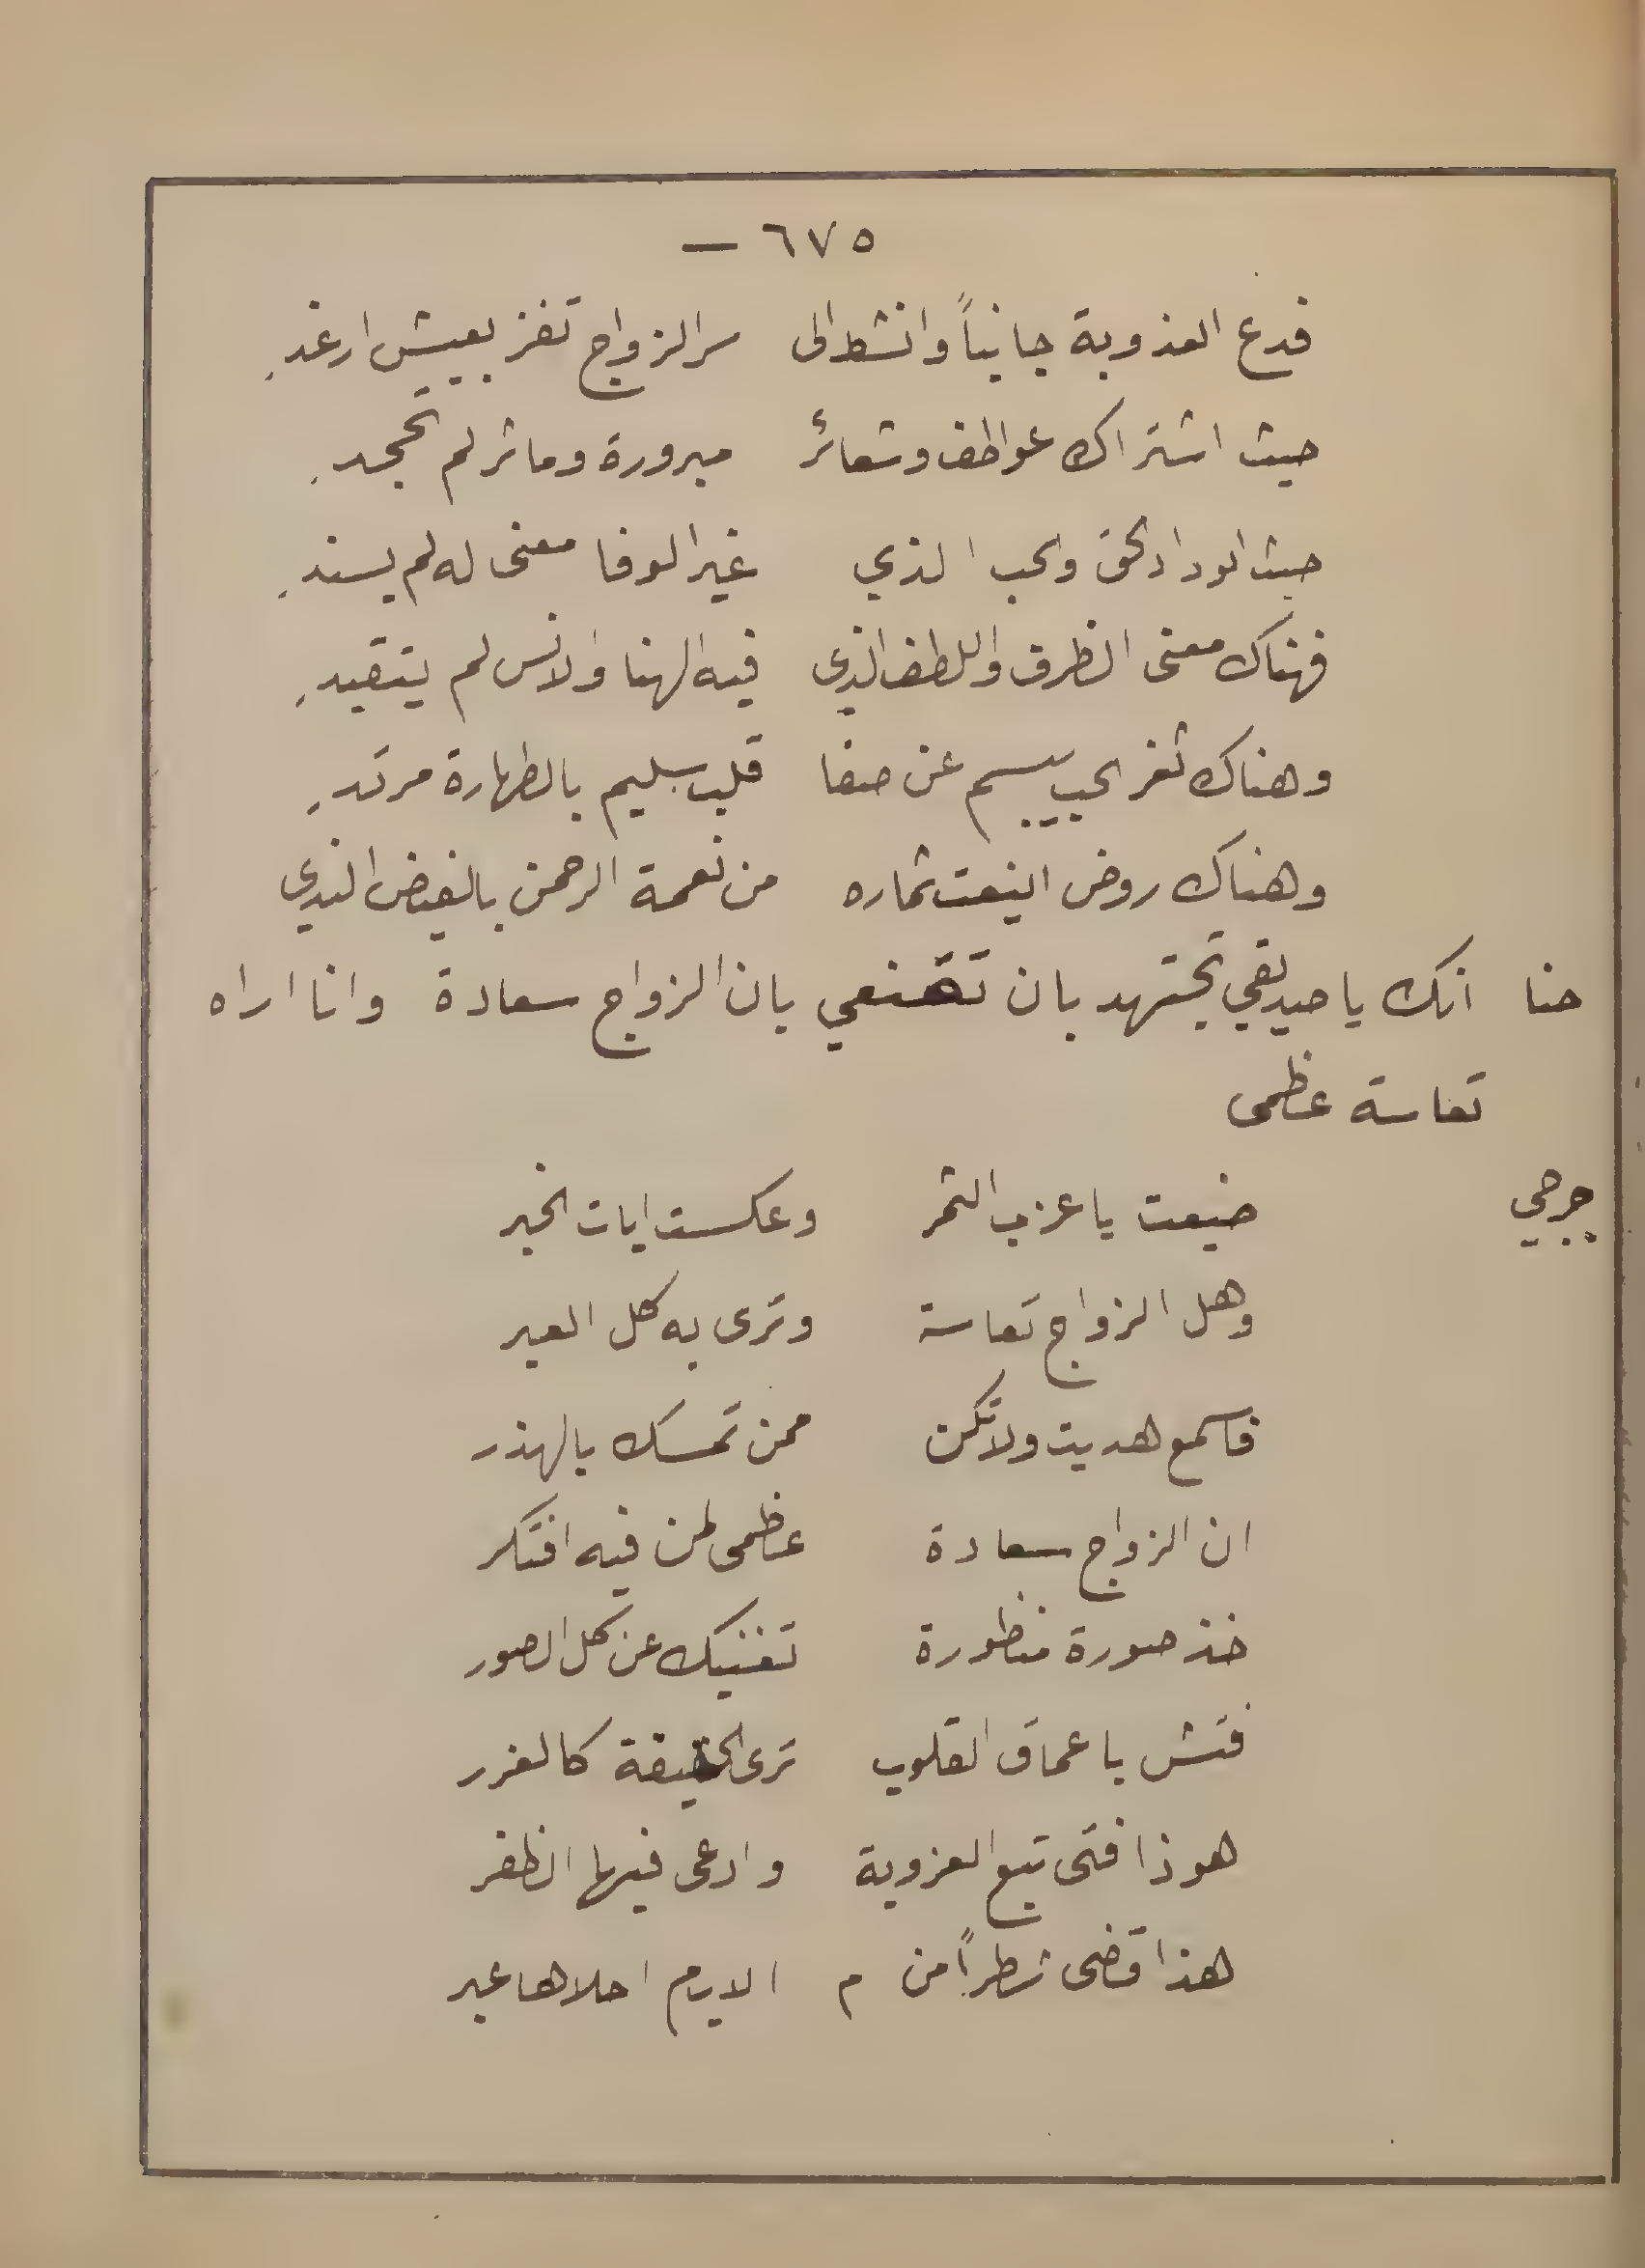 ٦٧٥ —
فدع العذوبة جانباً وانشط الى سر الزواج تفز بعيش ارغدِ
حيث اشتراك عواطف وشعائر مبرورة وماثر لم تجحدِ
حيث الوداد الحق والحب الذي غير الوفا معنى له لم يسندِ
فهناك معنى الظرف واللطف الذي فيه الهنا والانس لم يتقيدِ
وهناك ثغر الحب يبسم عن صفا قلب سليم بالطهارة مرتدِ
وهناك روض اينعت ثماره من نعمة الرحمن بالفيض الندي
حنا انك يا صديقي تجتهد بان تقنعني بان الزواج سعادة وانا اراه
تعاسة عظمى
جرجي ضيعت يا عزب الثمر وعكست ايات الخبر
وهل الزواج تعاسة وترى به كل العبر
فاسمع هديت ولا تكن ممن تمسك بالهذر
ان الزواج سعادة عظمى لمن فيه افتكر
خذ صورة منظورة تغنيك عن كل الصور
فتش باعماق القلوب ترى الحقيقة كالغرر
هوذا فتى تبع العزوبة وادعى فيها الظفر
هذا قضى شطراً من م الايام احلاها عبر